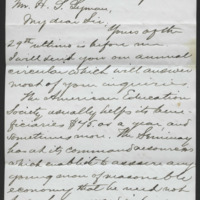 Mr. H. S. Lyman,
My dear Sir,
Yours of the
29th ultimo is before me.
I will send you an annual
circular which will answer
most of your inquiries.
The American Education
Society usually helps its bene-
ficiaries $75.00 a year and
sometimes more. The Seminary
has at its command resources
which enable it to assure any
young man of reasonable
economy that he need not